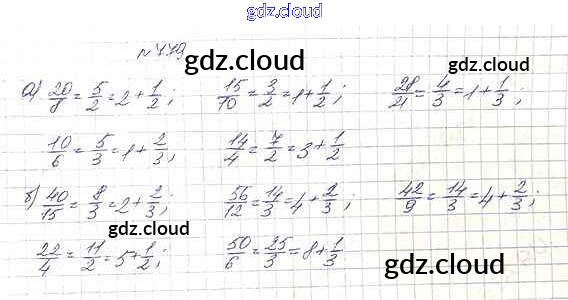 gdz.cloud
№779
gdz.cloud
а) 20/8 = 5/2 = 2 + 1/2; 15/10 = 3/2 = 1 + 1/2; 28/21 = 4/3 = 1 + 1/3;
gdz.cloud
10/6 = 5/3 = 1 + 2/3; 14/4 = 7/2 = 3 + 1/2
б) 40/15 = 8/3 = 2 + 2/3; 56/12 = 14/3 = 4 + 2/3; 42/9 = 14/3 = 4 + 2/3;
gdz.cloud
22/4 = 11/2 = 5 + 1/2; 50/6 = 25/3 = 8 + 1/3
gdz.cloud